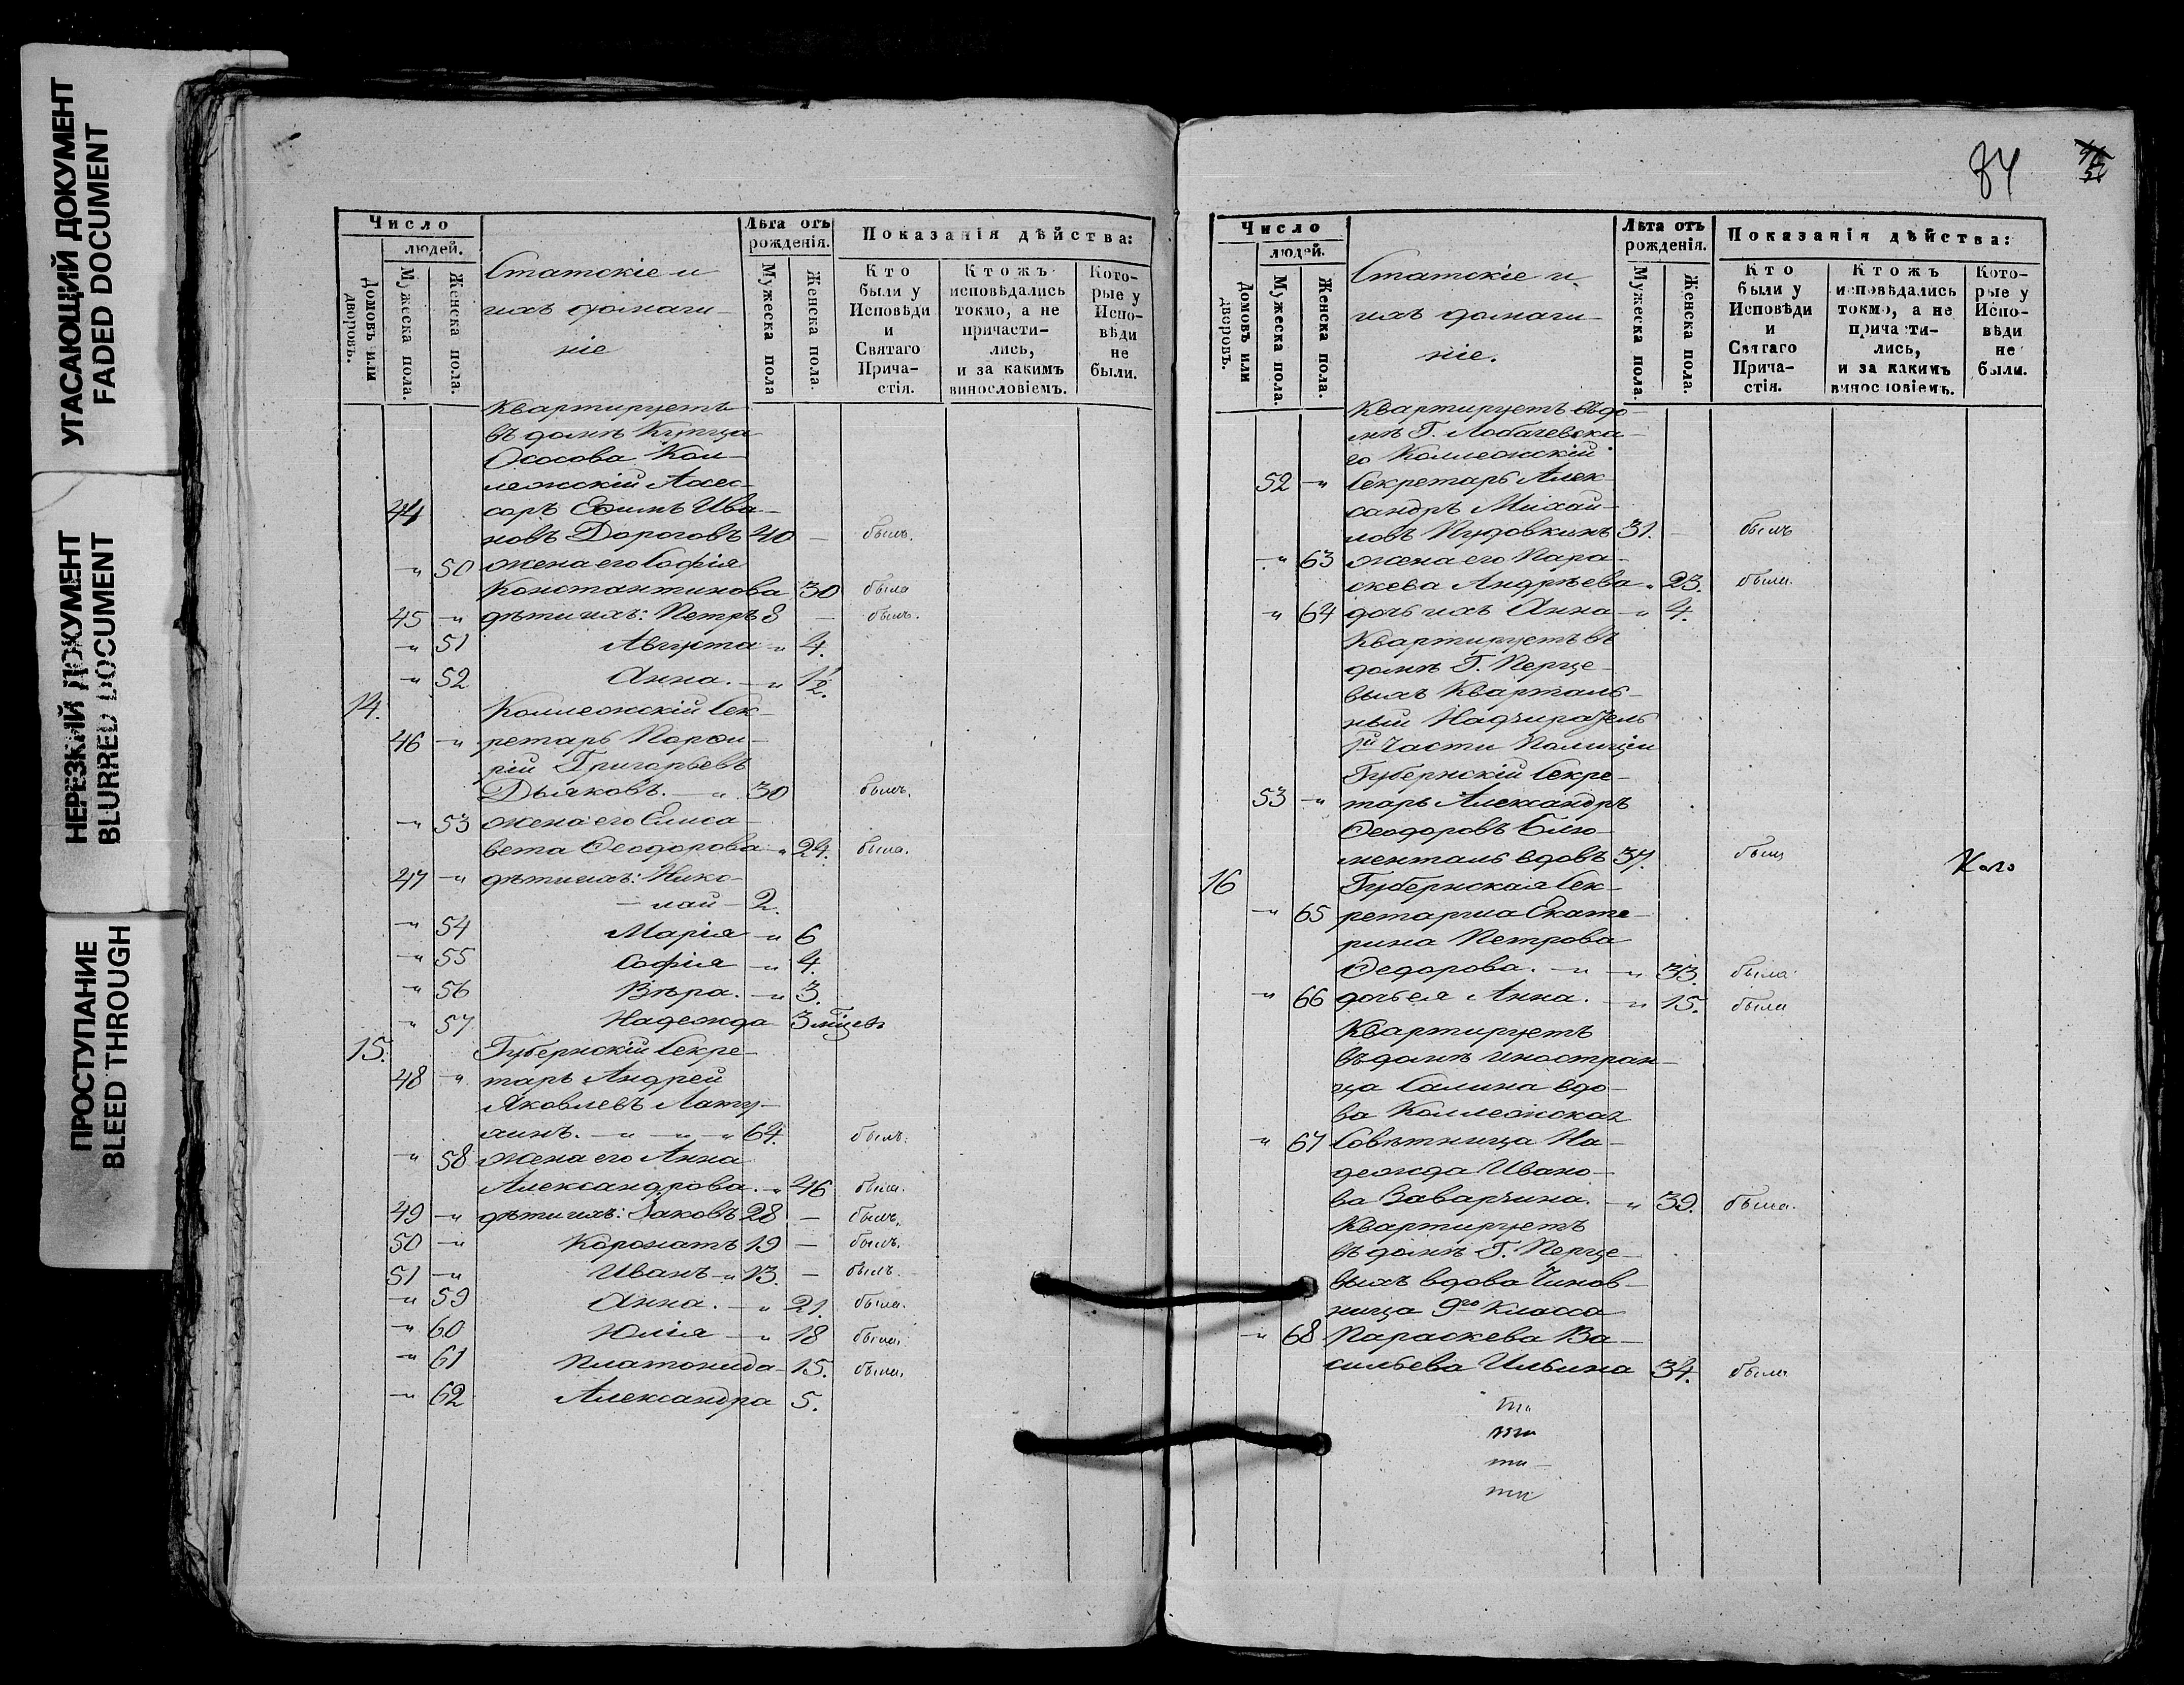 УГАСАЮЩИЙ ДОКУМЕНТ
FADED DOCUMENT
НЕРЕЗКИЙ ДОКУМЕНТ
BLURRED DOCUMENT
ПРОСТУПАНИЕ
BLEED THROUGH
Число
людей.
Домовъ или дворовъ.
Мужеска пола.
Женска пола.
Статскіе и
ихъ домаш-
ніе
Лѣта отъ рожденія.
Мужеска пола
Женска пола.
Показанія дѣйства:
Кто были у Исповѣди и Святаго Прича-стія.
Ктожъ исповѣдались токмо, а не причасти-лись, и за какимъ винословіемъ.
Кото-рые у Испо-вѣди не были.
Квартируетъ
въ домѣ Купца
Ососова Кол-
лежскій Ассес-
44 соръ Ефимъ Ива-
новъ Дороговъ 40 — былъ.
-"- 50 жена его Софія
Константинова 30 была
45 -"- дѣти ихъ: Петръ 8 — былъ.
-"- 51 Августа -"- 4.
-"- 52 Анна. -"- 1/2.
14. Коллежскій Сек-
46 -"- ретарь Порфи-
рій Григорьевъ
Дьяковъ. -"- 30 былъ.
-"- 53 жена его Елиса-
вета Ѳеодорова -"- 24. была.
47 -"- дѣти ихъ: Нико-
- лай - 2.
-"- 54 Марія -"- 6
-"- 55 Софія -"- 4.
-"- 56 Вѣра. -"- 3.
-"- 57 Надежда 3 мѣсцевъ
15. Губернскій Секре-
48 -"- тарь Андрей
Яковлевъ
-"- -"- 64. былъ.
-"- 58 жена его Анна
Александрова. -"- 46 была.
49 -"- дѣти ихъ: Іаковъ 28 — былъ.
50 -"- Коронатъ 19 — былъ.
51 -"- Иванъ -"- 13. — былъ.
-"- 59 Анна. -"- 21. была.
-"- 60 Юлія -"- 18 была.
-"- 61 Платонида - 15. была.
-"- 62 Александра 5.
84
Число
людей.
Домовъ или дворовъ.
Мужеска пола.
Женска пола.
Статскіе и
ихъ домаш-
ніе.
Лѣта отъ рожденія.
Мужеска пола.
Женска пола.
Показанія дѣйства:
Кто были у Исповѣди и Святаго Прича-стія.
Ктожъ исповѣдались токмо, а не причасти-лись, и за какимъ винословіемъ.
Кото-рые у Испо-вѣди не были.
Квартируетъ въ до-
мѣ Г. Лобачевска-
го Коллежскій
52 -"- Секретарь Алек-
сандръ Михай-
ловъ Пудовкинъ 31. — былъ
-"- 63 жена его Пара-
скева Андрѣева -"- 23. была.
-"- 64 дочь ихъ Анна -"- 4.
Квартируетъ въ
домѣ Г. Перце-
выхъ Кварталь-
ный Надзиратель
части Полиціи
Губернскій Секре-
53 -"- тарь Александръ
Ѳеодоровъ Блю-
менталь вдовъ 37. былъ
16 Губернская Сек-
-"- 65 ретарша Екате-
рина Петрова
Ѳедорова. -"- -"- 33. была.
-"- 66 дочь ея Анна. -"- 15. была
Квартируетъ
въ домѣ иностран-
ца Салина вдо-
ва Коллежская
-"- 67 Совѣтница На-
дежда Ивано-
ва Заварзина. -"- 39. была.
Квартируетъ
въ домѣ Г. Перце-
выхъ вдова Чинов-
ница 9го класса
-"- 68 Параскева Ва-
сильева Ильина 34. была